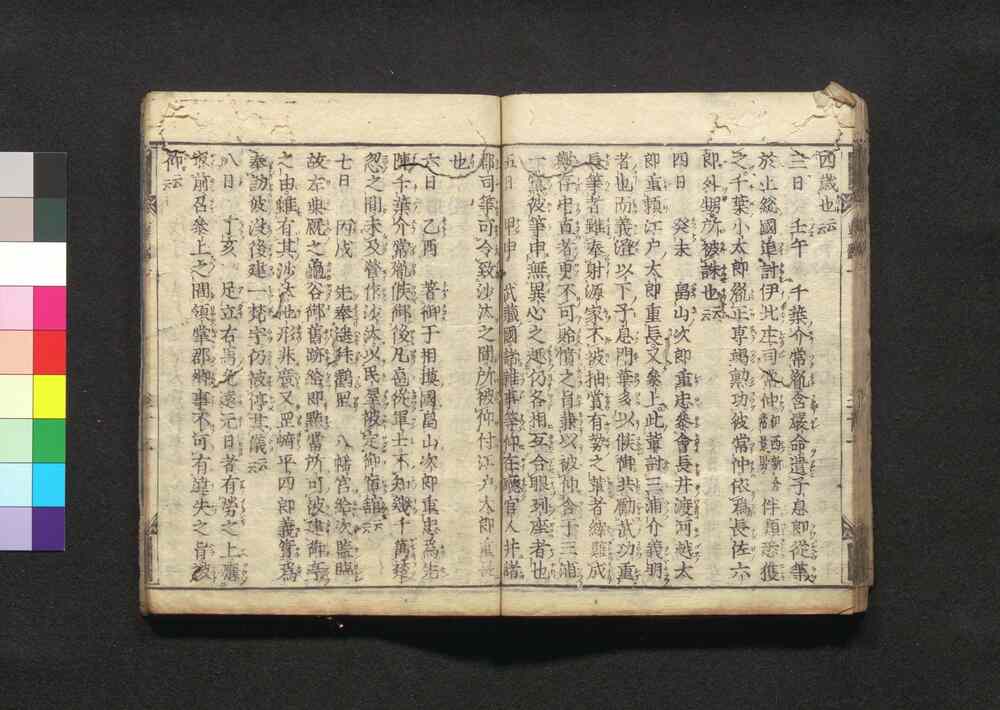 四歳也云云
三日 壬午 千葉介常胤含嚴命遣子息郎從等
於上総國追討伊北庄司常仲伊西新介常景男件類悉獲
之千葉小太郎胤正專竭勲功彼常仲依爲長佐六
郎外甥所被誅也云云
四日 癸未 畠山次郎重忠參會長井渡河越太
郎重頼江戸太郎重長又參上此輩討三浦介義明
者也而義澄以下子息門葉多以候御共勵武功重
長等者雖奉射源家不被抽賞有勢之輩者縡難成
歟存忠直者更不可貽憤之旨兼以被仰含于三浦
一黨彼等申無異心之趣仍各相互合眼列座者也
五日 甲申 武藏國諸雜事等仰在廳官人并諸
郡司等可令致沙汰之間所被仰付江戸太郎重長
也
六日 乙酉 著御于相摸國畠山次郎重忠爲先
陣千葉介常胤候御後凡扈從軍士不知幾千萬楚
忽之間未及營作沙汰以民屋被定御宿舘云云
七日 丙戌 先奉遥拜鶴岡 八幡宮給次監臨
故左典厩之龜谷御舊跡給即點當所可被建御亭
之由雖有其沙汰地形非廣又岡崎平四郎義實爲
奉訪彼没後建一梵宇仍被停其儀云云
八日 丁亥 足立右馬允遠元日者有勞之上應
最前召參上之間領掌郡郷事不可有違失之旨被
仰云云